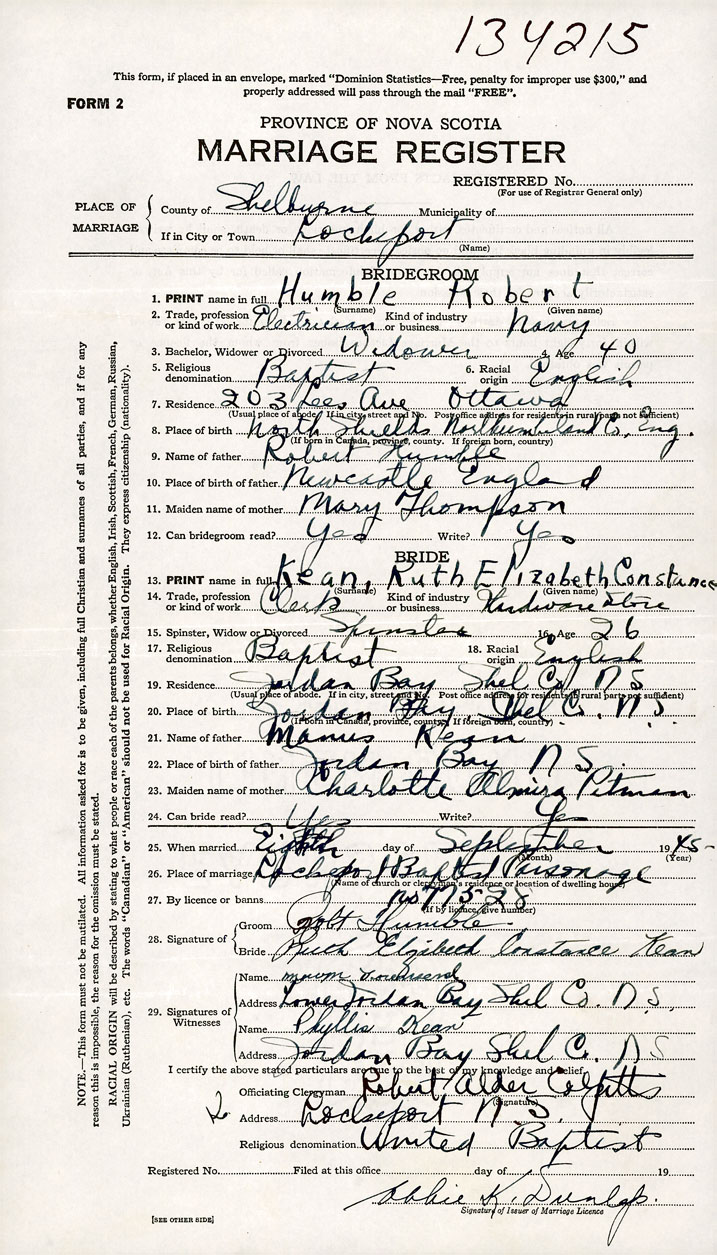 134215
This form, if placed in an envelope, marked "Dominion Statistics—Free, penalty for improper use $300," and
properly addressed will pass through the mail "FREE".
FORM 2
PROVINCE OF NOVA SCOTIA
MARRIAGE REGISTER
REGISTERED No.
(For use of Registrar General only)
PLACE OF MARRIAGE
County of Shelburne Municipality of
If in City or Town Lockeport
(Name)
BRIDEGROOM
1. PRINT name in full Humble Robert
(Surname) (Given name)
2. Trade, profession or kind of work Electrician Kind of industry or business Navy
3. Bachelor, Widower or Divorced Widower 4. Age 40
5. Religious denomination Baptist 6. Racial origin English
7. Residence 203 Lees Ave Ottawa
(Usual place of abode. If in city, street and No. Post office address for residents in rural parts not sufficient)
8. Place of birth North Shields Northumberland Co, Eng.
(If born in Canada, province, county. If foreign born, country)
9. Name of father Robert Humble
10. Place of birth of father Newcastle England
11. Maiden name of mother Mary Thompson
12. Can bridegroom read? Yes Write? Yes
BRIDE
13. PRINT name in full Kean, Ruth Elizabeth Constance
(Surname) (Given name)
14. Trade, profession or kind of work Clerk Kind of industry or business Hardware Store
15. Spinster, Widow or Divorced Spinster 16. Age 26
17. Religious denomination Baptist 18. Racial origin English
19. Residence Jordan Bay Shel Co. N S
(Usual place of abode. If in city, street and No. Post office address for residents in rural parts not sufficient)
20. Place of birth Jordan Bay Shel Co. N. S.
(If born in Canada, province, county. If foreign born, country)
21. Name of father Manus Kean
22. Place of birth of father Jordan Bay N S.
23. Maiden name of mother Charlotte Almira Pitman
24. Can bride read? Yes Write? Yes
25. When married Eighth day of September 1945-
(Month) (Year)
26. Place of marriage Lockeport Baptist Parsonage
(Name of church or clergyman's residence or location of dwelling house)
27. By licence or banns no 77528
(If by licence, give number)
28. Signature of
Groom Robt Humble
Bride Ruth Elizibeth Constance Kean
29. Signatures of Witnesses
Name
Address Lower Jordan Bay Shel Co. N. S.
Name Phyllis Kean
Address Jordan Bay Shel C. N S
I certify the above stated particulars are true to the best of my knowledge and belief.
Officiating Clergyman Robert Alder Colpitts
(Signature)
Address Lockeport N. S.
Religious denomination United Baptist
Registered No. Filed at this office day of 19
Abbie K. Dunlap.
Signature of Issuer of Marriage Licence
[SEE OTHER SIDE]
NOTE.—This form must not be mutilated. All information asked for is to be given, including full Christian and surnames of all parties, and if for any
reason this is impossible, the reason for the omission must be stated.
RACIAL ORIGIN will be described by stating to what people or race each of the parents belongs, whether English, Irish, Scottish, French, German, Russian,
Ukrainian (Ruthenian), etc. The words "Canadian" or "American" should not be used for Racial Origin. They express citizenship (nationality).